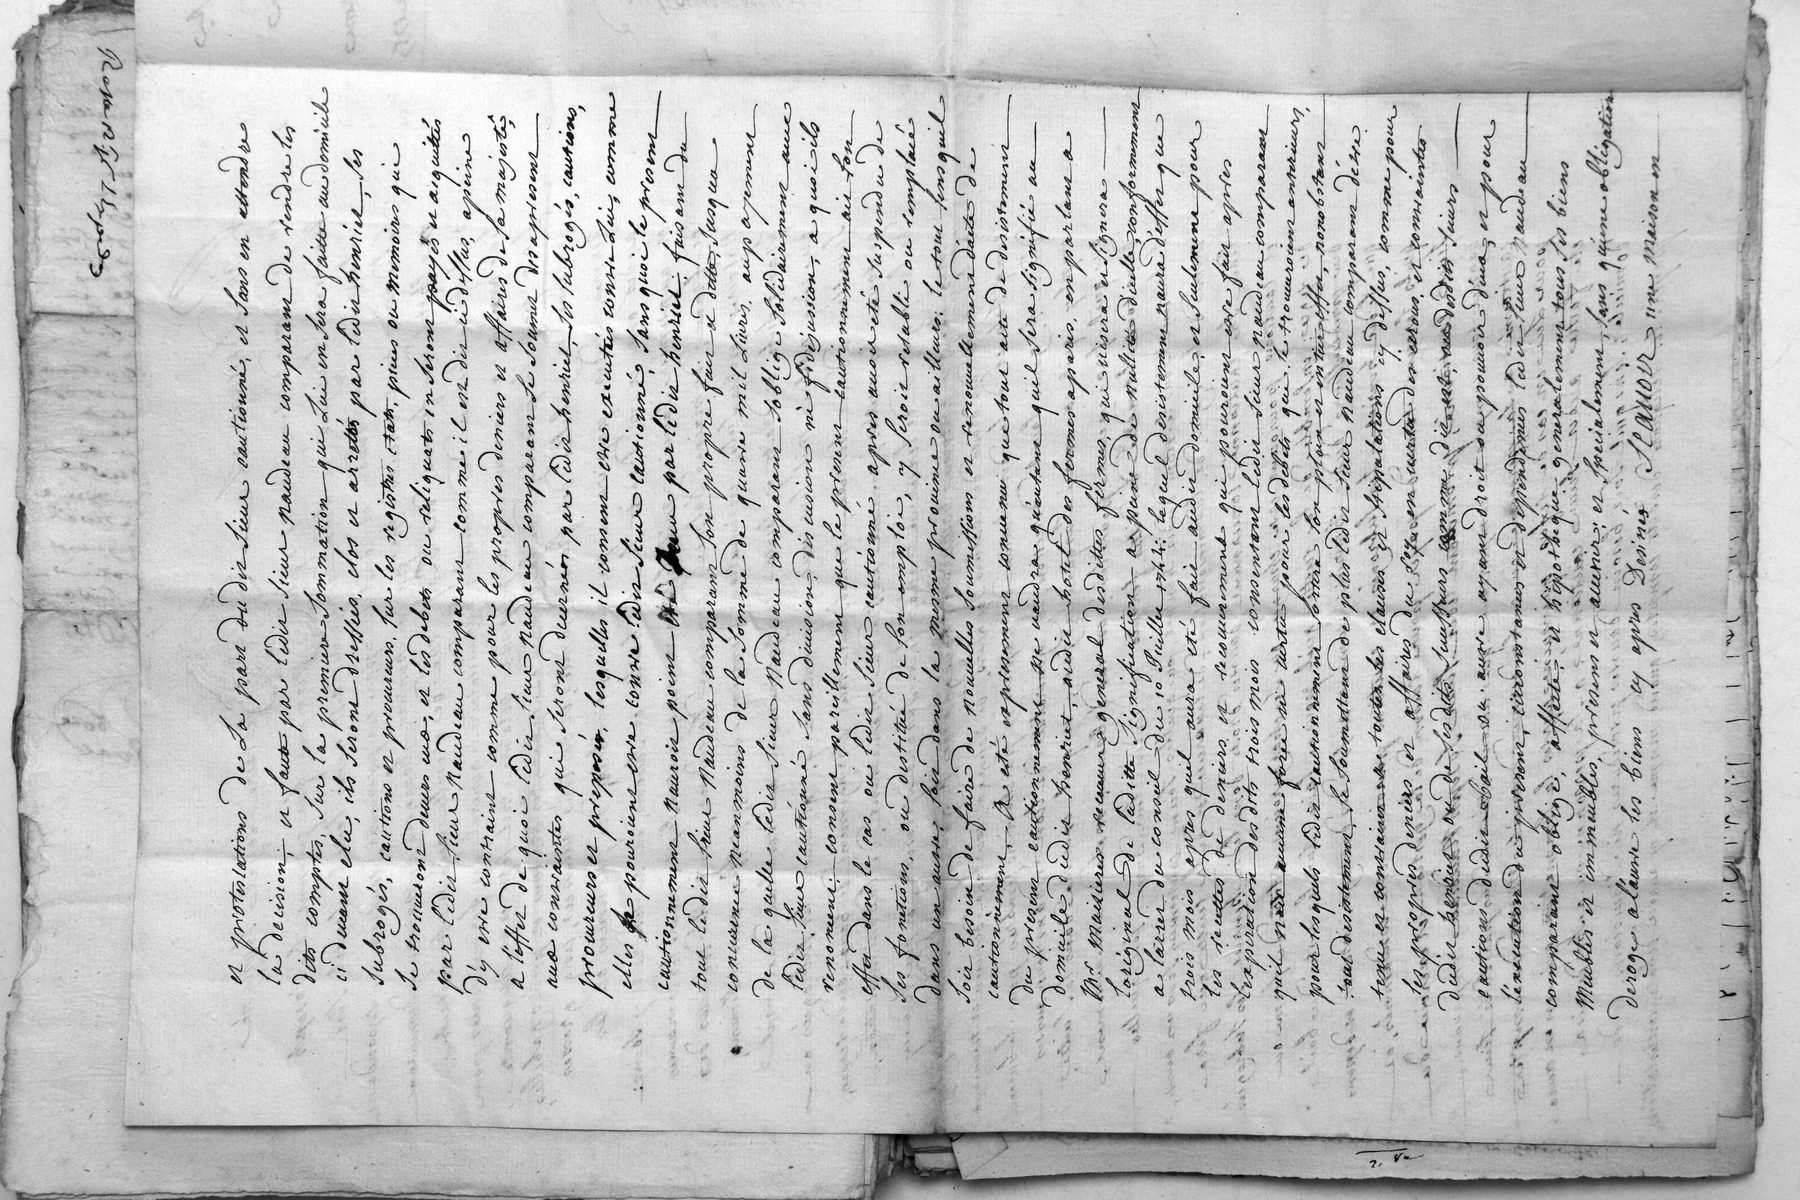 et protestations de La part dudit Sieur cautionné, et Sans en attendre
la decision et faute par ledit Sieur naudeau comparant de rendre les
dits comptes, Sur la premiere Sommation qui Lui en Sera faitte au domicile
ci devant elu, ils Seront dressés, clos et arretés par ledit henriet, Ses
Subrogés, cautions et procureurs, Sur les registres, etats, pieces ou memoires qui
Se trouveront devers eux, et les debets ou reliquats en Seront payés et acquités
par ledit Sieur Naudeau comparant comme il est dit ci dessus, apeine
d'y etre contraint comme pour les propres deniers et affaires de Sa majesté,
a l'effet de quoi ledit Sieur Naudeau comparant Se Soumet des apresent
aux contraintes qui Seront decernées par ledit henriet, Ses Subrogés, cautions,
procureurs et preposés, lesquelles il consent etre executées contre Lui, comme
elles pouroient etre contre ledit Sieur cautionné, Sans quoi le present
cautionnement n'auroit point par ledit henriet, faisant du
tout ledit Sieur Naudeau comparant Son propre fait et dette, Jusqua
concurrence neanmoins de la Somme de quatre mil Livres, au payement
de la quelle ledit Sieur Naudeau comparant S'oblige Solidairement avec
ledit Sieur cautionné Sans division, discution ni fidejussion, a quoi ils
renoncent: consent pareillement que le present cautionnement ait Son
effet dans le cas ou ledit Sieur cautionné apres avoir eté Suspendu de
Ses fonctions, ou destitué de Son emploi, y Seroit retabli ou remplacé
dans un autre, Soit dans la mesme province ou ailleurs, le tout Sans quil
Soit besoin de faire de nouvelles Soumissions et renouvellement d'acte de
cautionnement, A eté expressement convenu que tout acte de desistement
du present cautionnement ne vaudra qu'autant quil Sera Signifié au
domicile dudit henriet, audit hotel des fermes aparis, en parlant a
Mr. Maisieres receveur general desdittes fermes, qui viserat et Signera
Loriginal de laditte Signification apeine de nullité d'icelle, conformement
a larret du conseil du 10 Juillet 1744; lequel desistement naura d'effet que
trois mois apres quil aura eté fait audit domicile, et Seulement pour
les recettes de deniers et recouvrement qui pouroient etre fait apres
lexpiration desdits trois mois consentant ledit Sieur naudeau comparant
quil nait aucune force ni vertu pour les debets qui Se trouveroient anterieurs,
pour lesquels ledit cautionnement Sortira Son plein et entier effet, nonobstant
tout desistement, Se Soumettant de plus ledit Sieur naudeau comparant d'etre
tenu et contraint a toutes les clauses et Stipulations cy dessus, comme pour
les propres deniers et affaires du Roy en vertu des et contraintes
dudit henriet ou de Sesdits Successeurs comme dit est, ou desdits Sieurs
cautions dudit bail ou autre ayant droit ou pouvoir d'eux, et pour
l'execution du present, circonstances et dependances ledit Sieur naudeau
comparant oblige, affecte et hipotheque generalement tous Ses biens
Meubles et immeubles, presens et avenir, et Specialement, Sans qu'une obligation
deroge a l'autre les biens cy apres Desinés SCAVOIR une Maison en